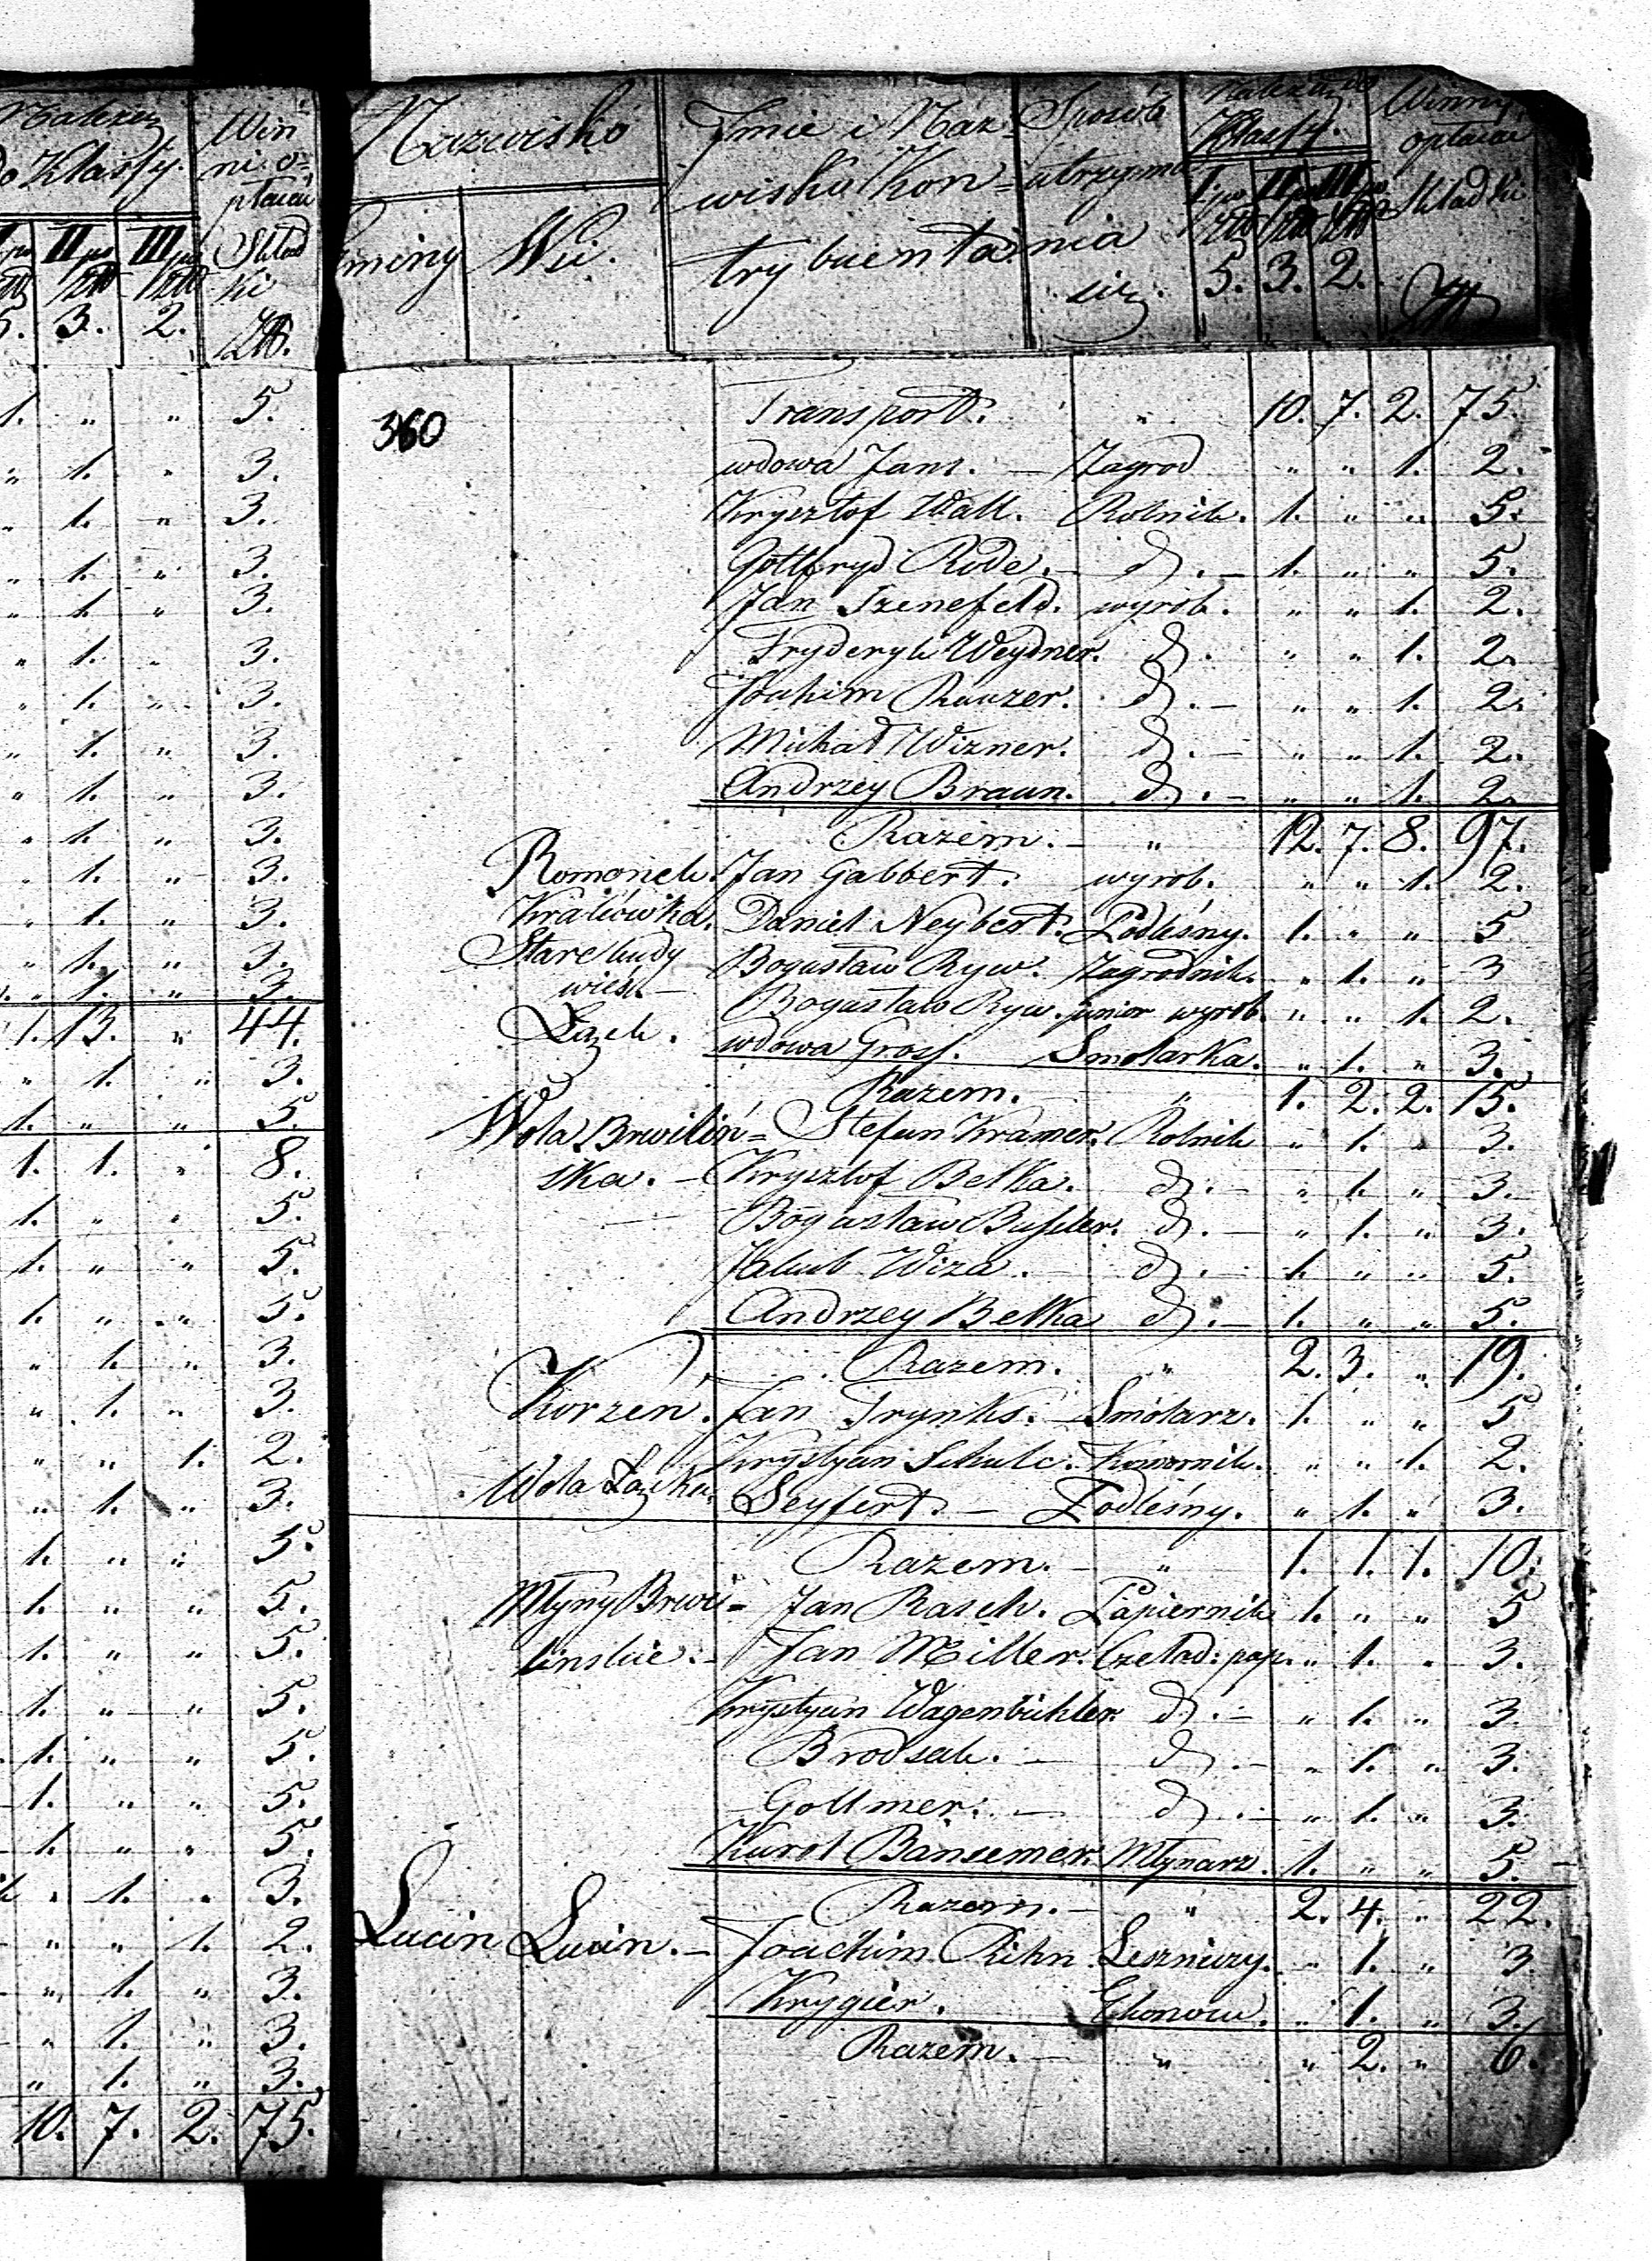 Należy
do Klassy.
Win
ni o=
płacać
Skład
ki
Złt.
I II III
5. 3. 2.
1. " " 5.
" 1. " 3.
" 1. " 3.
" 1. " 3.
" 1. " 3.
" 1. " 3.
" 1. " 3.
" 1. " 3.
" 1. " 3.
" 1. " 3.
" 1. " 3.
" 1. " 3.
" 1. " 3.
" 1. " 3.
1. 13. " 44.
" 1. " 3.
1. " " 5.
1. 1. " 8.
1. " " 5.
1. " " 5.
1. " " 5.
" 1. " 3.
" 1. " 3.
" " 1. 2.
" 1. " 3.
1. " " 5.
1. " " 5.
1. " " 5.
1. " " 5.
1. " " 5.
1. " " 5.
1. " " 5.
" 1. " 3.
" " 1. 2.
" 1. " 3.
" 1. " 3.
" 1. " 3.
10. 7. 2. 75.
Nazwisko
Gminy Wsi.
Imie i Naz=
wisko Kon=
trybuenta
Sposób
utrzyma
nia
się.
Należy do
Klassy.
I II III
5. 3. 2.
Winny
opłacać
Składki
Złt
360
Transport. " 10. 7. 2. 75.
wdowa Jans. - Zagrod " " 1. 2.
Krysztof Wall. Rolnik. 1. " " 5.
Gottfryd Rode. - d. - 1. " " 5.
Jan Szenefeld. wyrob. " " 1. 2.
Fryderyk Weydner. d. " " 1. 2.
Joahim Rauzer. d. - " " 1. 2.
Michał Wizner. d. - " " 1. 2.
Andrzey Braun. d. - " " 1. 2.
Razem. - " 12. 7. 8. 97.
Romonek. Jan Gabbert. wyrob. " " 1. 2.
Kraliówka. Daniel Neybert. Podleśny. 1. " " 5
Stare budy Bogusław Ryw. Zagrodnik. " 1. " 3
wieś. - Bogusław Ryw. junior wyrob. " " 1. 2.
Łązek. wdowa Gross. Smolarka. " 1. " 3.
Razem. - " 1. 2. 2. 15.
Wola Brwiliń= Stefan Kramer. Rolnik " 1. " 3.
ska. - Krysztof Belka. d. - " 1. " 3.
Bogusław Bussler. d. - " 1. " 3.
Jakub Wiza. - d. - 1. " " 5.
Andrzey Belka d. - 1. " " 5.
Razem. " 2. 3. " 19.
Korzeń. Jan Trynks. - Smolarz. 1. " " 5
Krystyan Schulc. Komornik. " " 1. 2.
Wola Łącka. Seyfert. - Podleśny. " 1. " 3.
Razem. - " 1. 1. 1. 10.
Młyny Brwi= Jan Rasch. Papiernik 1. " " 5
linskie. - Jan Miller. Czelad: pap. " 1. " 3.
Krystyan Wagenbichler. d. - " 1. " 3.
Brodsak. - d. - " 1. " 3.
Gollmer. - d. - " 1. " 3.
Karol Bansemer. Młynarz. 1. " " 5.
Razem. - " 2. 4. " 22.
Lucin Lucin. - Joachim Rihn. Leszniczy. " 1. " 3
Krygier. Ekonom. " 1. " 3.
Razem. - " " 2. " 6.